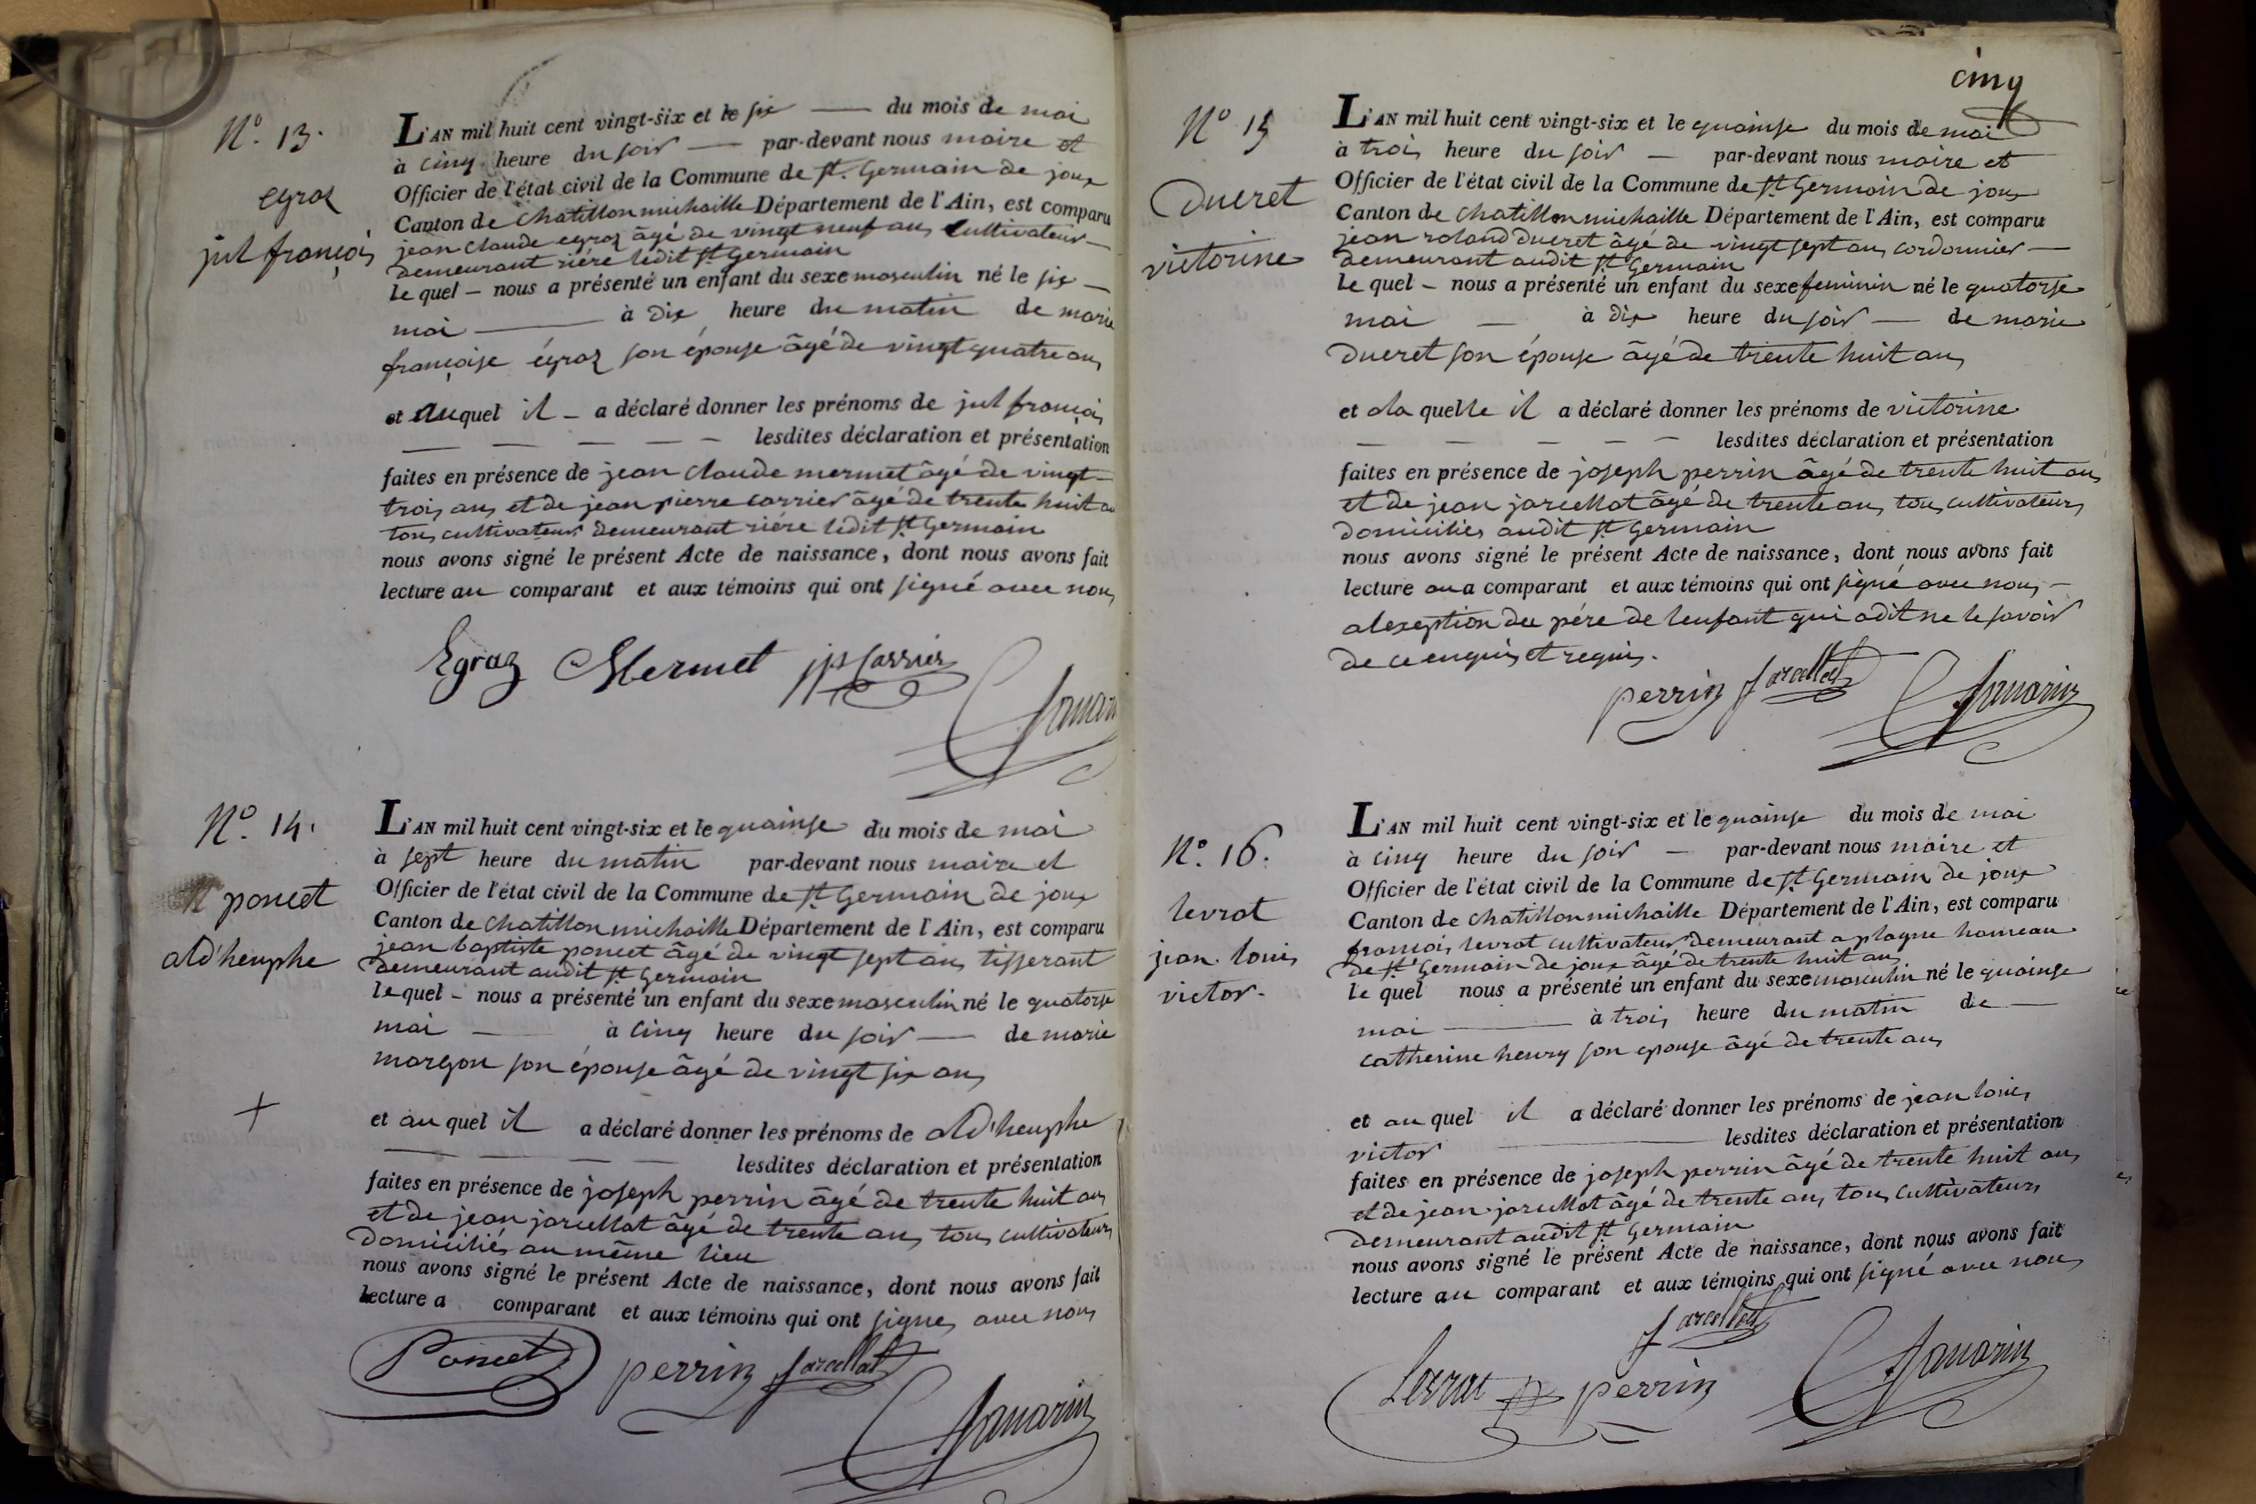 N.° 13.
egraz
jul françois
L'AN mil huit cent vingt-six et le six du mois de mai
à cinq heure du soir par-devant nous maire et
Officier de l'état civil de la Commune de st. Germain de joux
Canton de chatillon michaille Département de l'Ain, est comparu
jean claude egraz âgé de vingt neuf ans cultivateur
demeurant riére ledit st Germain
le quel nous a présenté un enfant du sexe masculin né le six
mai à dix heure du matin de marie
françoise égraz son épouse âgé de vingt quatre ans
et auquel il a déclaré donner les prénoms de jul françois
lesdites déclaration et présentation
faites en présence de jean claude mermet âgé de vingt
trois ans et de jean pierre carrier âgé de trente huit an
tous cultivateurs demeurant riére ledit st Germain
nous avons signé le présent Acte de naissance, dont nous avons fait
lecture au comparant et aux témoins qui ont signé avec nous
Egraz Mermet jp Carrier
N.° 14.
poncet
ald'heuphe
L'AN mil huit cent vingt-six et le quainse du mois de mai
à sept heure du matin par-devant nous maire et
Officier de l'état civil de la Commune de st Germain de joux
Canton de chatillon michaille Département de l'Ain, est comparu
jean baptiste poncet âgé de vingt sept ans tisserant
demeurant audit st Germain
le quel nous a présenté un enfant du sexe masculin né le quatorse
mai à cinq heure du soir de marie
margon son épouse âgé de vingt six ans
+
et au quel il a déclaré donner les prénoms de ald'heuphe
lesdites déclaration et présentation
faites en présence de joseph perrin âgé de trente huit ans
et de jean jarcellat âgé de trente ans tous cultivateurs
domiciliés au même lieu
nous avons signé le présent Acte de naissance, dont nous avons fait
lecture a comparant et aux témoins qui ont signes avec nous
Poncet perrin jarcellat
cinq
N° 15
Ducret
victorine
L'AN mil huit cent vingt-six et le quainse du mois de mai
à trois heure du soir par-devant nous maire et
Officier de l'état civil de la Commune de st Germain de joux
Canton de chatillon michaille Département de l'Ain, est comparu
jean roland ducret âgé de vingt sept ans cordonnier
demeurant audit st Germain
le quel nous a présenté un enfant du sexe feminin né le quatorse
mai à dix heure du soir de marie
Ducret son épouse âgé de trente huit ans
et ala quelle il a déclaré donner les prénoms de victorine
lesdites déclaration et présentation
faites en présence de joseph perrin âgé de trente huit ans
et de jean jarcellat âgé de trente ans tous cultivateurs
domiciliés audit st Germain
nous avons signé le présent Acte de naissance, dont nous avons fait
lecture au a comparant et aux témoins qui ont signé avec nous
alexeption du pére de lenfant qui a dit ne le savoir
de ce enquis et requis.
perrin jarcellat
N°. 16.
levrat
jean louis
victor
L'AN mil huit cent vingt-six et le quainse du mois de mai
à cinq heure du soir par-devant nous maire et
Officier de l'état civil de la Commune de st Germain de joux
Canton de chatillon michaille Département de l'Ain, est comparu
françois levrat cultivateur demeurant a plagne hameau
de st Germain de joux âgé de trente huit ans
le quel nous a présenté un enfant du sexe masculin né le quainse
mai à trois heure du matin de
catherine henry son epouse âgé de trente ans
et au quel il a déclaré donner les prénoms de jean louis
victor lesdites déclaration et présentation
faites en présence de joseph perrin âgé de trente huit ans
et de jean jarcellat âgé de trente ans tous cultivateurs
demeurant audit st Germain
nous avons signé le présent Acte de naissance, dont nous avons fait
lecture au comparant et aux témoins qui ont signé avec nous
jarcellat
Levrat perrin